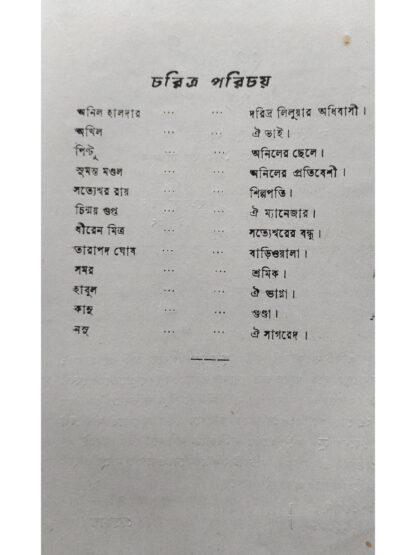 চরিত্র পরিচয়
অনিল হালদার ... ... দরিদ্র লিলুয়ার অধিবাসী।
অখিল ... ... ঐ ভাই।
পিন্টু ... ... অনিলের ছেলে।
সুমন্ত মণ্ডল ... ... অনিলের প্রতিবেশী।
সত্যেশ্বর রায় ... ... শিল্পপতি।
চিন্ময় গুপ্ত ... ... ঐ ম্যানেজার।
ধীরেন মিত্র ... ... সত্যেশ্বরের বন্ধু।
তারাপদ ঘোষ ... ... বাড়িওয়ালা।
সমর ... ... শ্রমিক।
হাবুল ... ... ঐ ভাগ্না।
কানু ... ... গুণ্ডা।
নস্তু ... ... ঐ সাগরেদ।